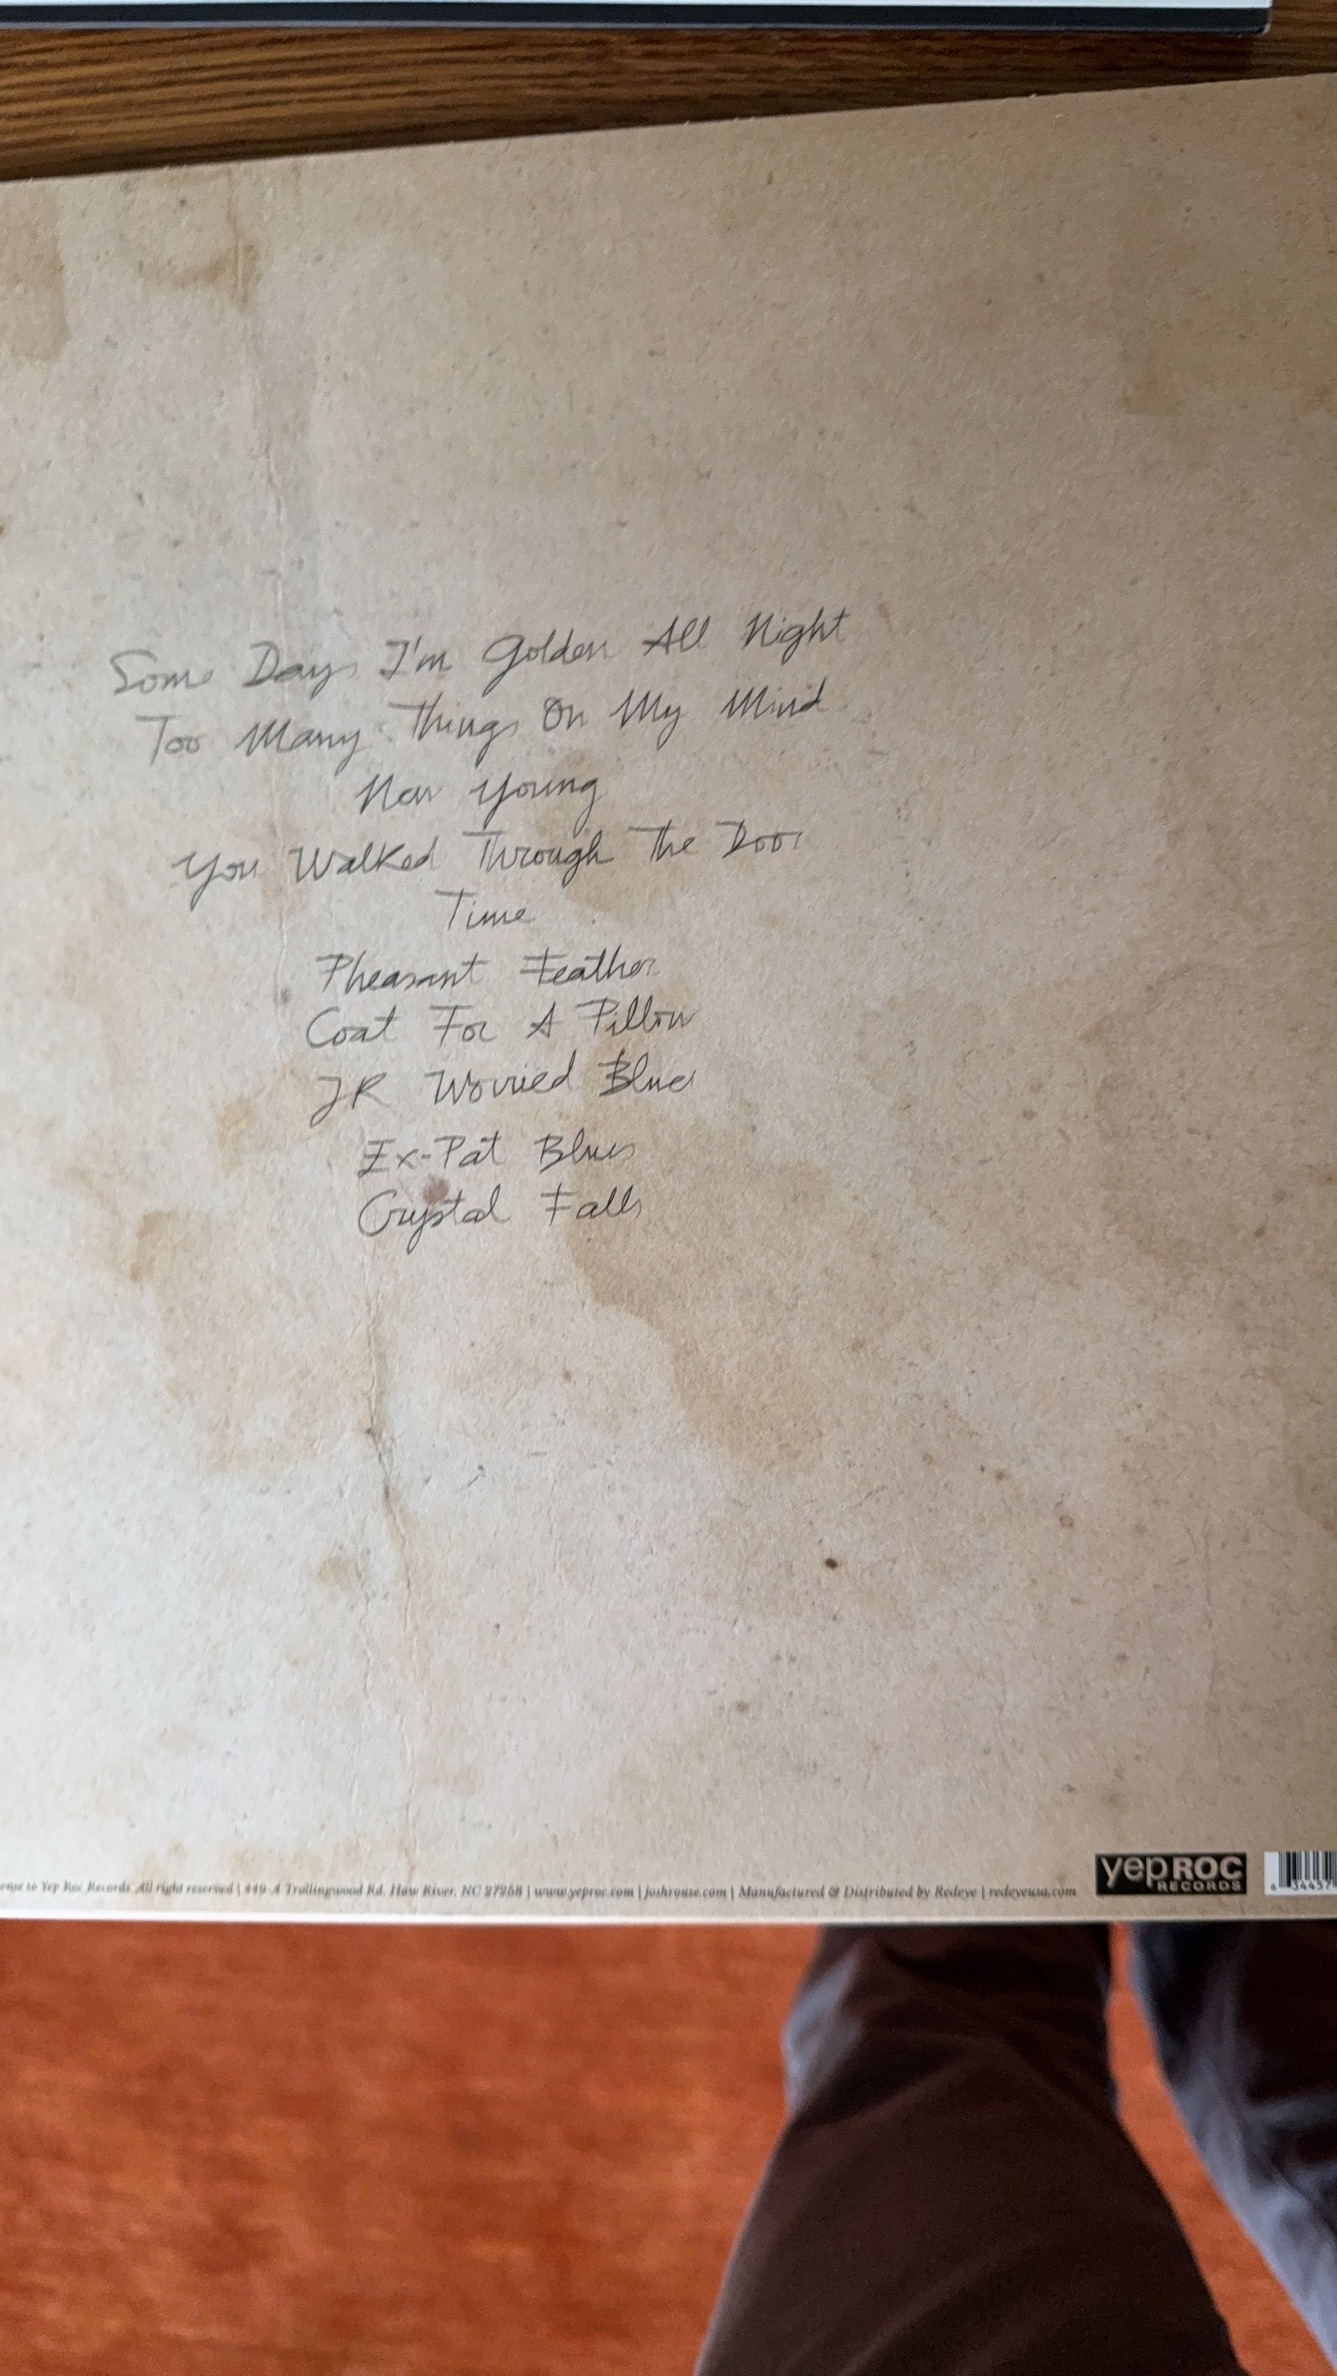 Some Days I'm Golden All Night
Too Many Things On My Mind
New Young
You Walked Through The Door
Time
Pheasant Feather
Coat For A Pillow
JR Worried Blues
Ex-Pat Blues
Crystal Falls
to Yep Roc Records. All right reserved | 449-A Trollingwood Rd. Haw River, NC 27258 | www.yeproc.com | joshrouse.com | Manufactured & Distributed by Redeye | redeyeusa.com
yep ROC
RECORDS